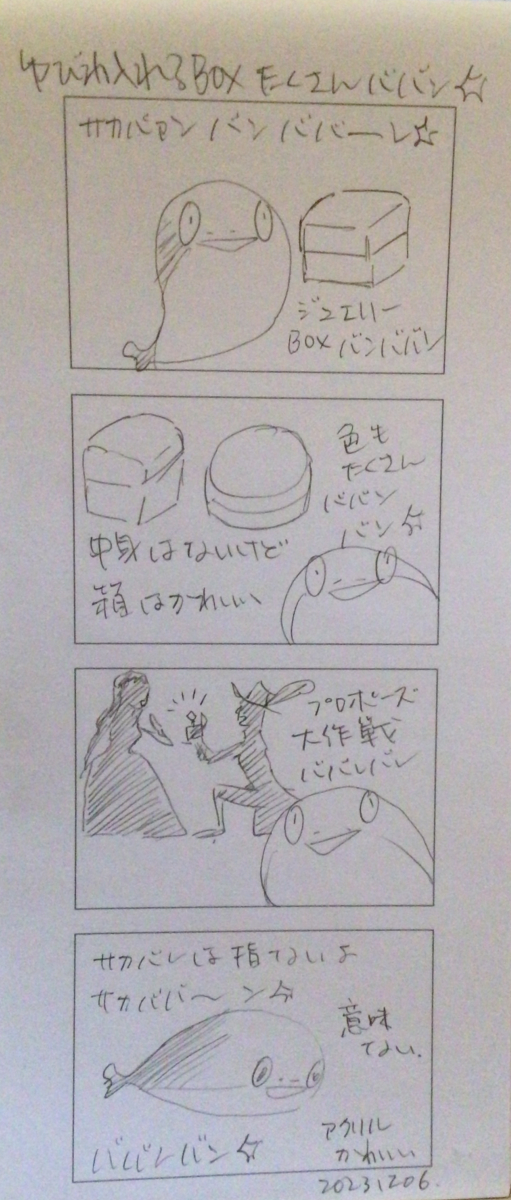 ゆびわ入れるBOX たくさんババン☆
サカバァンバンババーン☆
ジュエリー
BOXバンババン
色も
たくさん
ババン
バン☆
中身はないけど
箱はかわいい
プロポーズ
大作戦
ババンバン
サカバンは指ないよ
サカババ〜ン☆
意味
ない.
ババンバン☆
アクリル
かわいい
20231206.